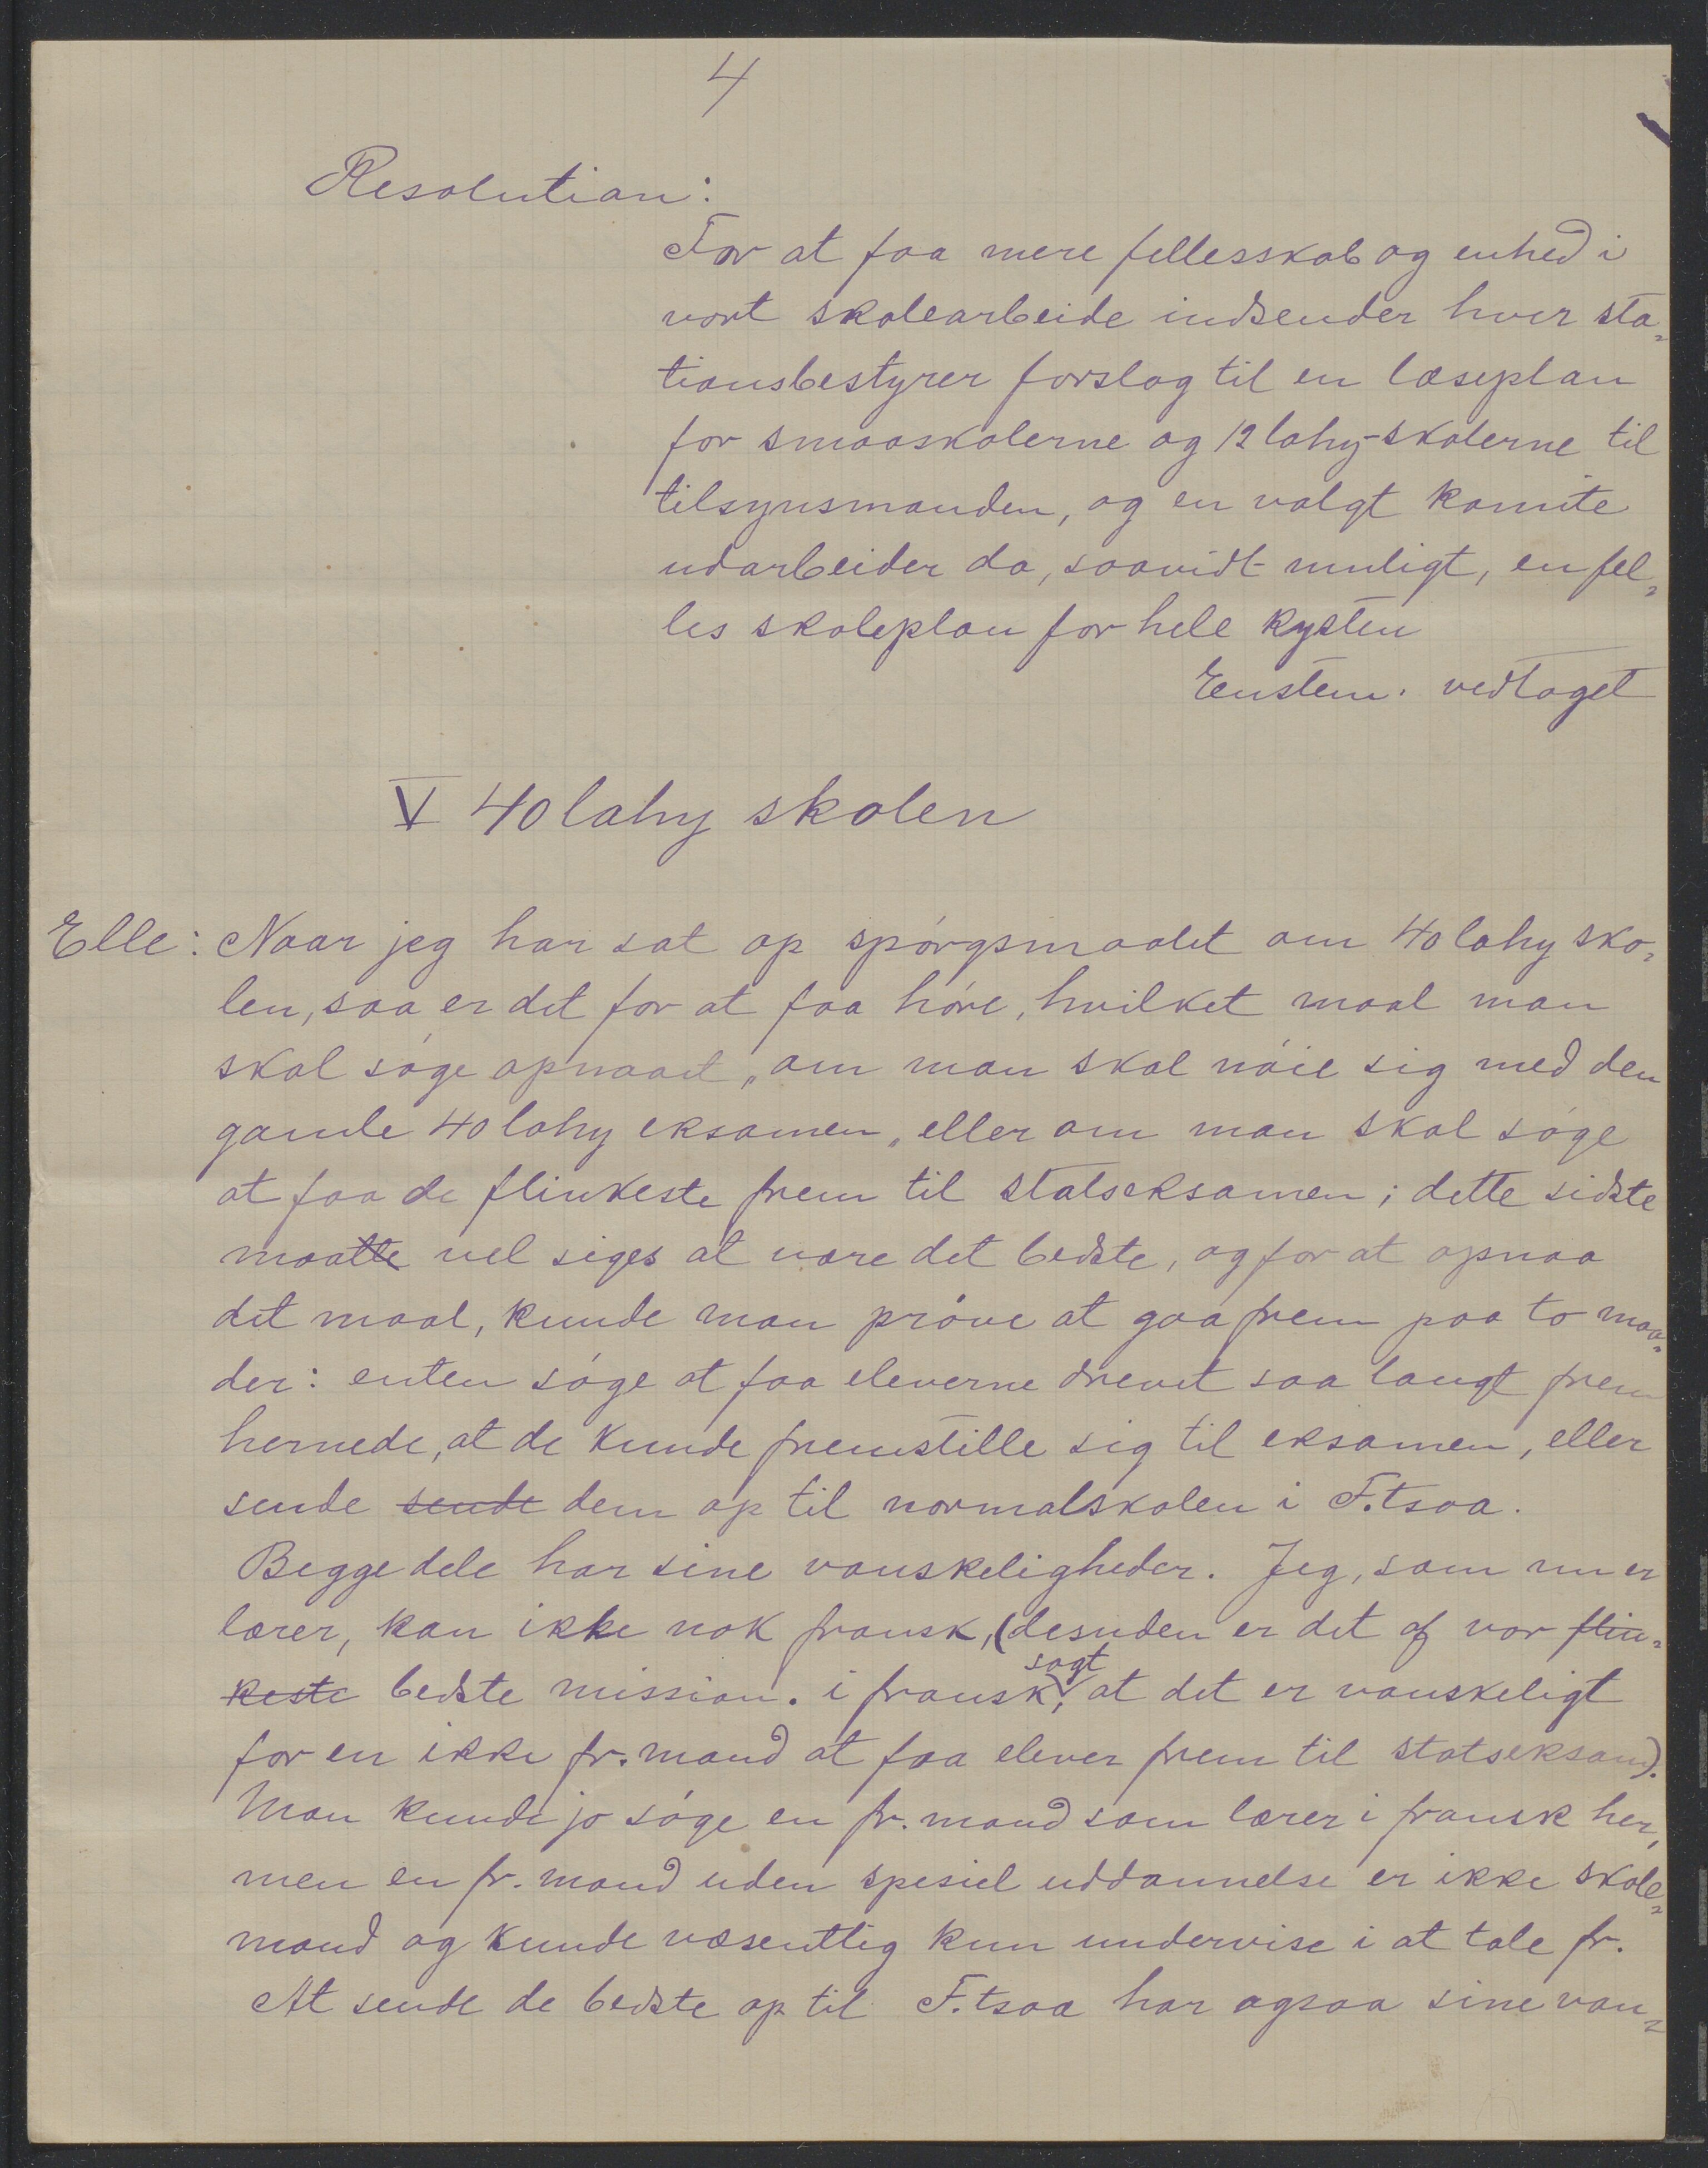 4
Resolution:
For at faa mere fellesskab og enhed i
vort skolearbeide indsender hver sta=
tionsbestyrer forslag til en læseplan
for smaaskolerne og 12 lahy-skolerne til
tilsynsmanden, og en valgt komite
udarbeider da, saavidt muligt, en fel=
les skoleplan for hele kysten
Enstem. vedtaget
V 40 lahy skolen
Elle: Naar jeg har sat op spórgsmaalet om 40 lahy sko=
len, saa er det for at faa hóre, hvilket maal man
skal sóge opnaaet, om man skal nóie sig med den
gamle 40 lahy eksamen, eller om man skal sóge
at faa de flinkeste frem til statseksamen; dette sidste
maatte vel siges at være det bedste, og for at opnaa
det maal, kunde man próve at gaa frem paa to maa=
der: enten sóge at faa eleverne drevet saa langt frem
hernede, at de kunde fremstille sig til eksamen, eller
sende sende dem op til normalskolen i F.tsoa.
Begge dele har sine vanskeligheder. Jeg, som nu er
lærer, kan ikke nok fransk, (desuden er det af vor flin=
keste bedste mission. i fransk, sagt at det er vanskeligt
for en ikke fr.mand at faa elever frem til statseksam).
Man kunde jo sóge en fr. mand som lærer i fransk her,
men en fr. mand uden spesiel uddannelse er ikke skole=
mand og kunde væsentlig kun undervise i at tale fr.
At sende de bedste op til F.tsoa har ogsaa sine van=